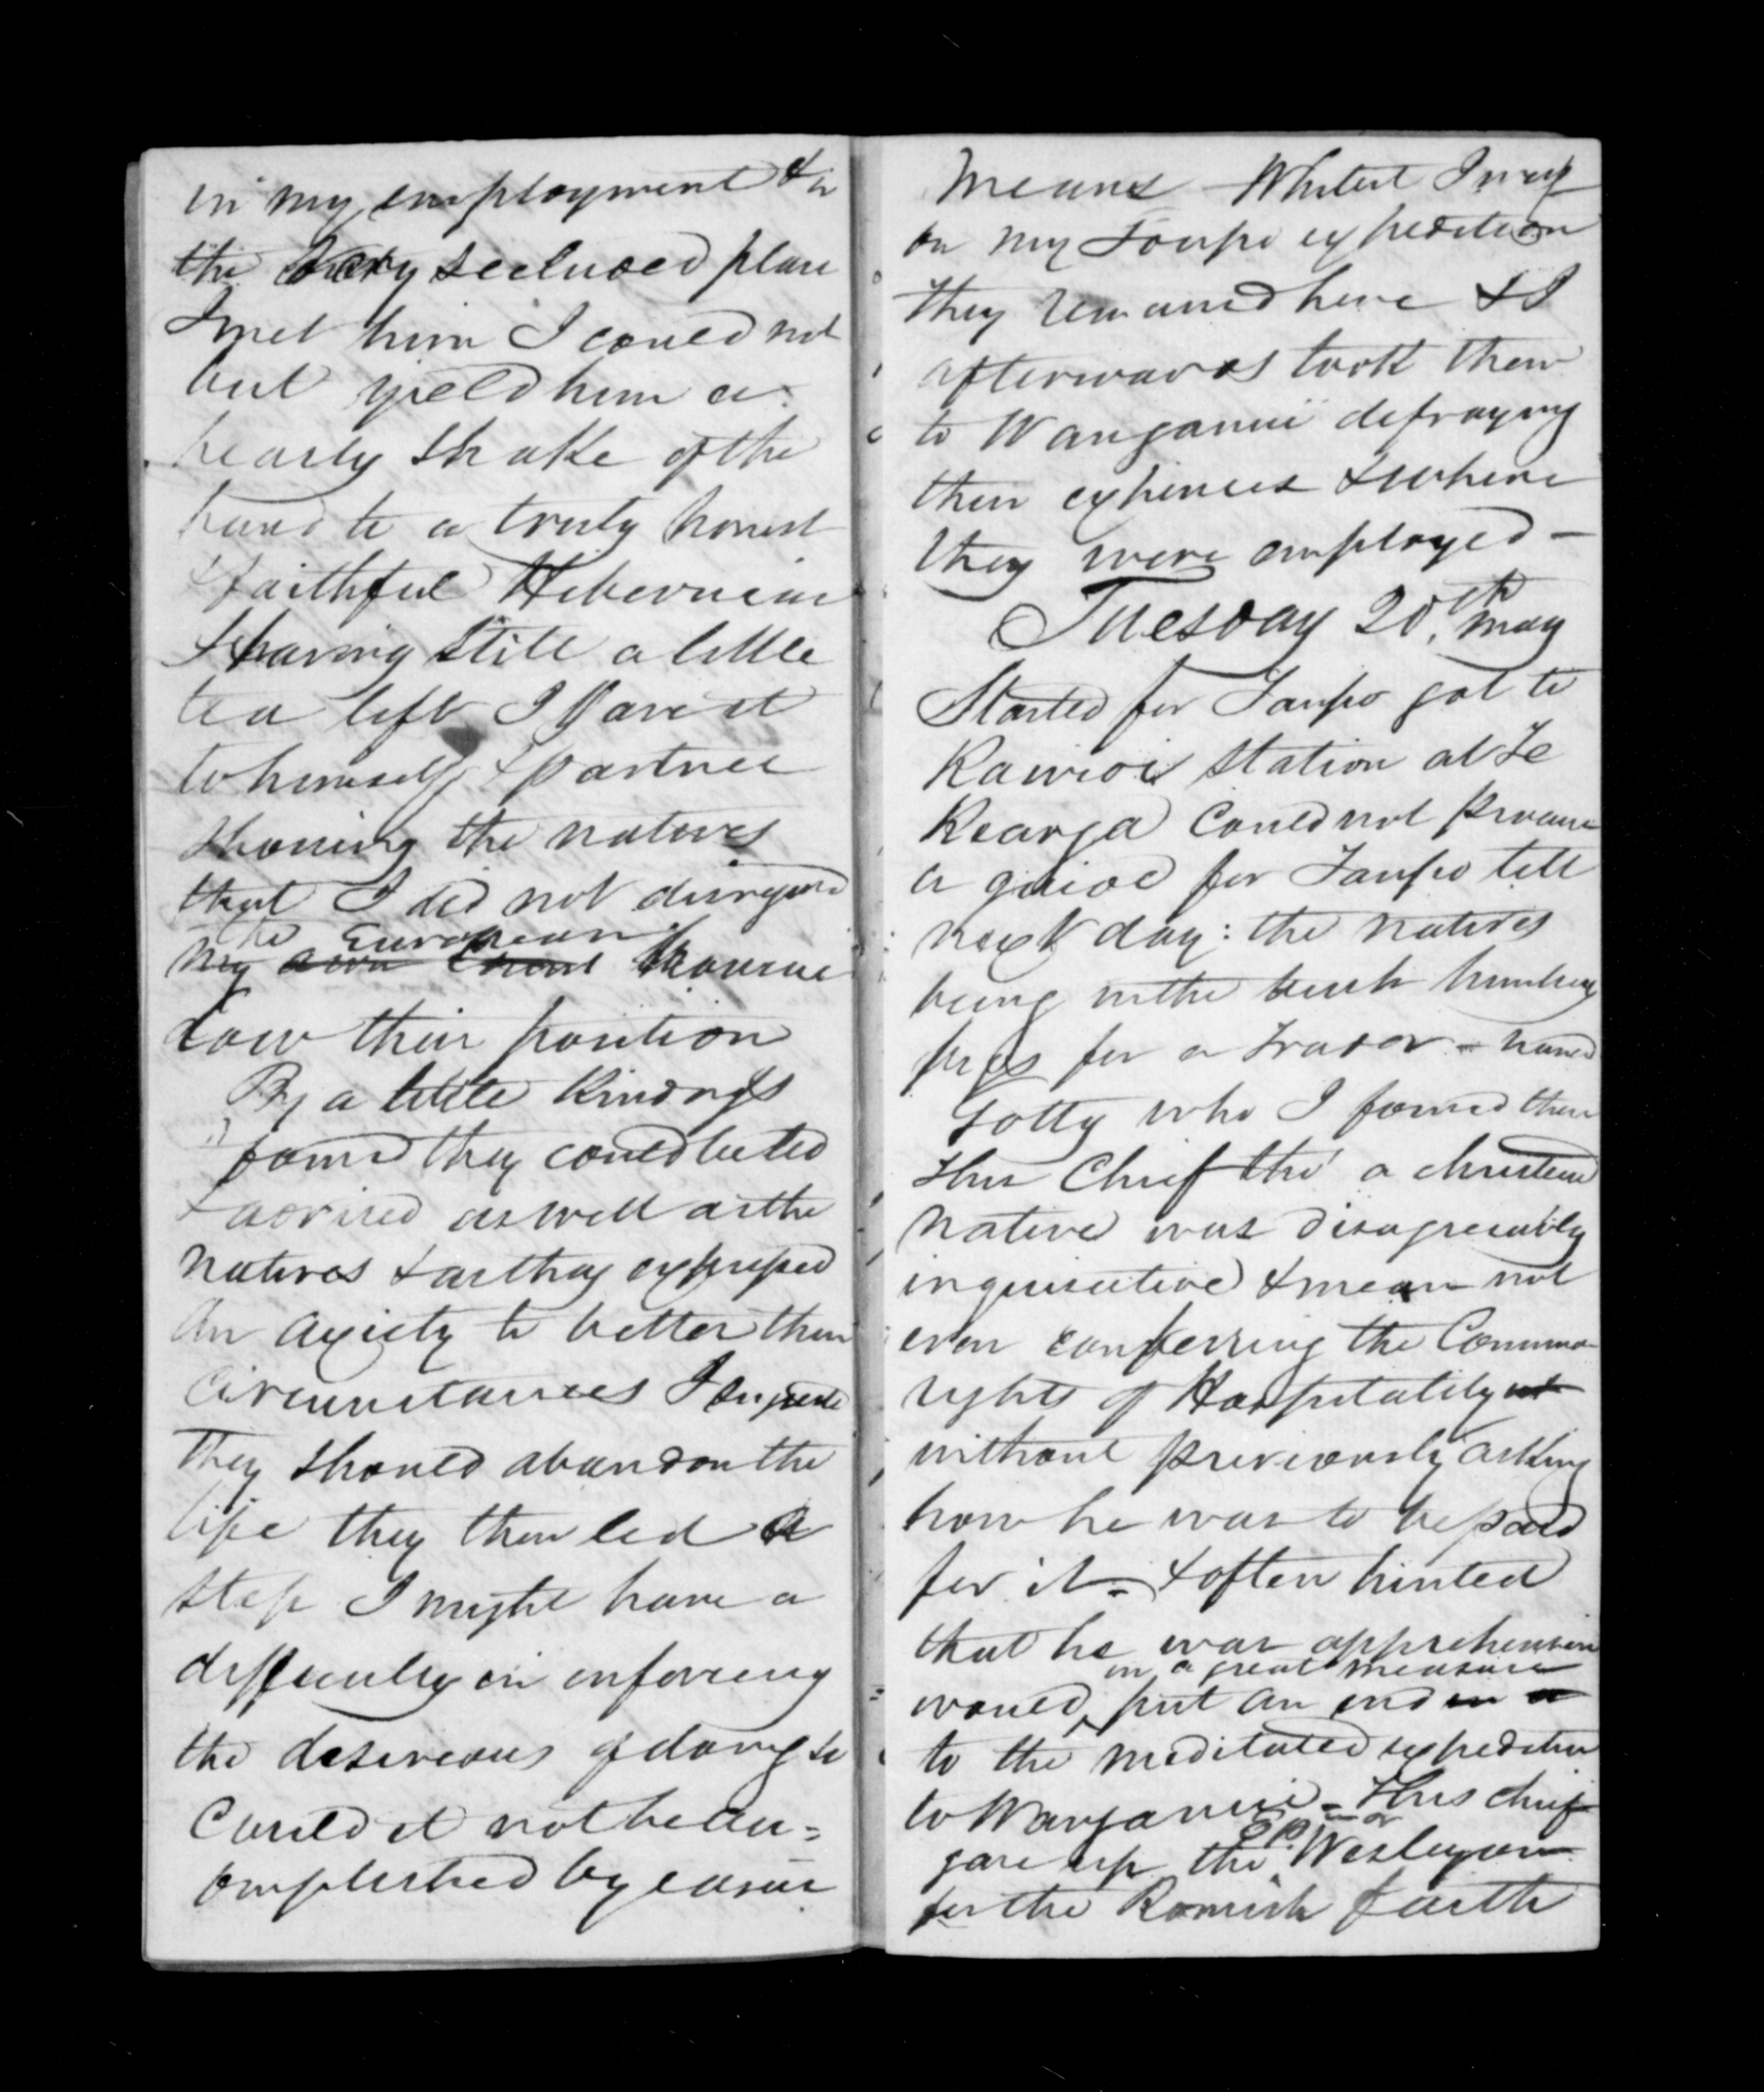 in my employment & in
the very secluded place
I met him I could not
but yield him a
hearty shake of the
hand to a truly honest
& faithful Hibernian
& having still a little
tea left I gave it
to himself & partner
showing the natives
that I did not disregard
the European
my own however
low their position
By a little kindness I
found they could be led
& advised as well as the
natives & as they expressed
an axiety to better their
circumstances I
they should abandon the
life they then led a
step I might have a
difficulty in enforcing
the desireous of doing so
Could it not be acc=
omplished by easier
means Whilst I was
on my Taupo expedition
they remained here & I
afterwards took them
to Wanganui defraying
their expences & where
they were employed —
Tuesday 20th May
Started for Taupo got to
station at Te
could not procure
a guide for Taupo till
next day: the natives
being in the bush hunting
pigs for a trador - named
Totty who I found there
This Chief tho' a christian
native was disagreeably
inquisitive & mean not
even conferring the Common
rights of Hospitality
without previously asking
how he was to be paid
for it - & often hinted
that he was apprehensive
in a great measure
would put an end in a
to the meditated expedition
to Wanganui - This chief
or
gave up the Wesleyan
for the Romish faith